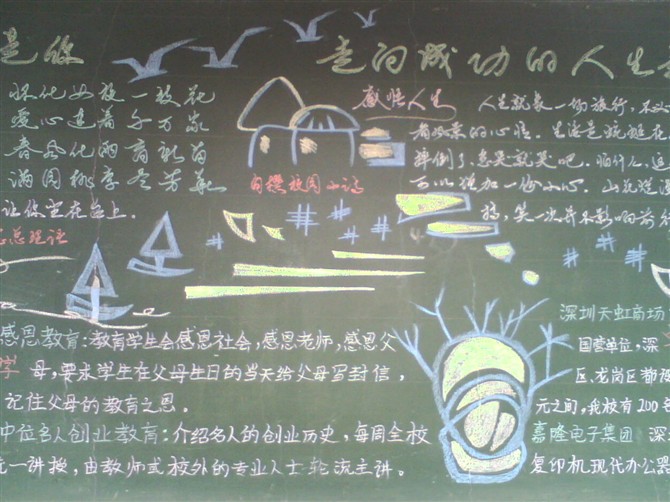 是你
走向成功的人生
怀化女校一校花
爱心连着千万家
春风化雨育新苗
满园桃李尽芳华
让你坐在台上.
总理话
感悟人生
人生就象一场旅行,不
看风景的心情.生活是
摔倒了,
可以强加一份小心.
搞,笑一次并不影响前
向攒校园小
感恩教育:教育学生会感恩社会,感恩老师,感恩父
母,要求学生在父母生日的当天给父母写封信,
记住父母的教育之恩.
中位名人创业教育:介绍名人的创业历史,每周全校
一讲授,由教师或校外的专业人士轮流主讲.
深圳天虹商场
国营单位,深
区,龙岗区都设
元之间,我校有200
嘉隆电子集团 深
复印机现代办公器